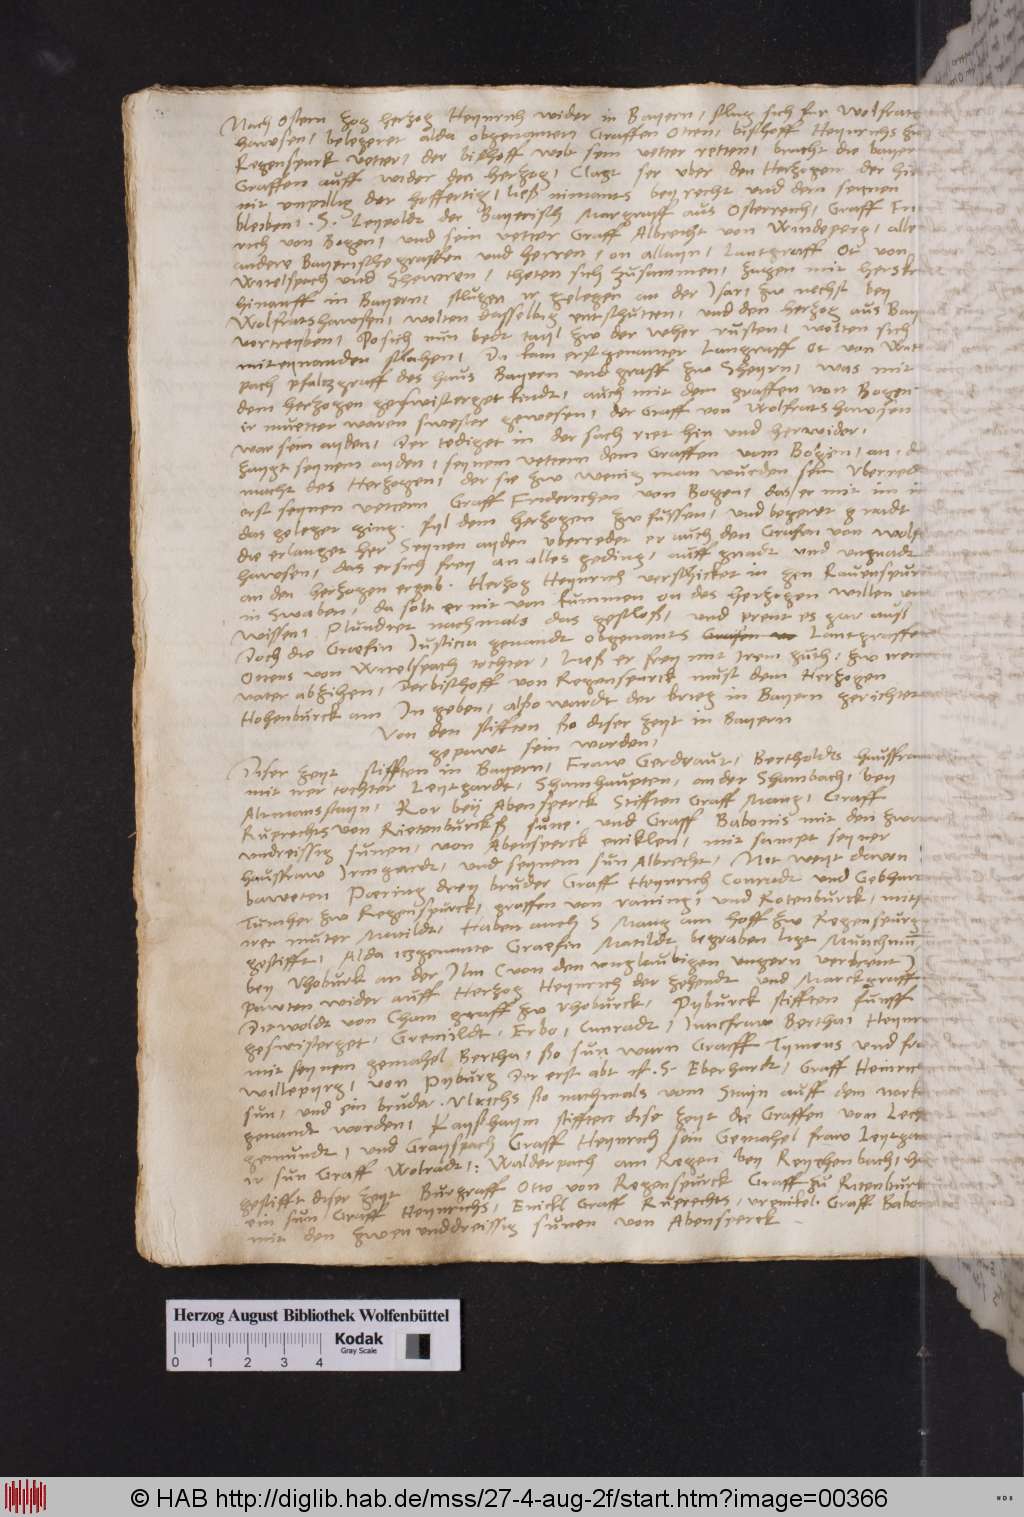 Nach Ostern zog herzog Heynrich wider in Bayern, slug sich fur Wolfrats
hawsen, belegeret alda obgenanten Graffen Otten, bischoff Heynrichs zu
Regenspurk vetter, der bischoff wolt sein vetter retten, bracht die bayer
Graffen auff wider den herzog, Clagt ser uber den Herzogen der hie
mit unpillig der hoffertig, ließ nimants bey recht und dem seynen
bleiben. S. Leypoldt der Bayerisch Margraff aus Osterreich, Graff Frid
rich von Bogen, und sein vetter Graff Albrecht von Windeperg, alle
andere Bayerische graffen und herren, on allayn, Lantgraff Ot von
Wittelspach und Sheyren, theten sich zusammen, zugen mit herskraft
hinauff in Bayern, slugen ir geleger an der Isar, zw nechst bey
Wolfratshawsen, wolten dasselbig entschutten, und den herzog aus Bay
vertreyben, Do sich nun bedt tayl zw der weher rusten, wolten sich
miteynander slahen, Da kam erstgenanter Langraff Ot von Wit
pach pfaltzgraff des haus Bayern und graff zw Sheyrn, was mit
dem herzogen geswistergetkindt, auch mit dem graffen von Bogen
ir muetter waren swester gewesen, der Graff von Wolfratshawsen
war sein ayden, Der tediget in der sach riet hin und herwider,
zaygt seynem ayden, seynem vettern dem Graffen vom Bogen, an, d
macht des Herzogen, der sie zw wenig man wurden sein Uberredt
erst seynen vettern Graff Friderichen von Bogen, das er mit im in
das geleger ging. fyl dem herzogen zw fussen, und begeret gnadt
die erlanget her Seynen ayden uberredet er auch den Grafen von wolf
hawsen, das er sich frey an alles geding, auff gnadt und ungnadt
an den herzogen ergab. Herzog Heynrich verschicket in gen Rauenspurg
in Swaben, da solt er nit von kummen on des herzogen willen und
wissen. Plundret nachmals das geschloß, und prent es gar aus,
Doch die Graefin Justicia genandt obgenants Lantgraffen
Ottens von Wittelspach tochter, Ließ er frey mit irem guth, zw irem
vater abzihen, Der bischoff von Regenspurck must dem Herzogen
Hohenburck am In geben, also wardt der krieg in Bayern gerichtet
Von den stifften so diser zeyt in Bayern
gepawet sein worden,
Diser zeyt stifften in Bayern, Fraw Gerdraut, Bertholdts hausfraw
mit irer tochter Leytgardt, Shamhaupten, an der Shambach, bey
Altmanstayn, Ror bey Abensperck Stifften Graff Mang, Graff
Ruprechts von Rietenburck sune. und Graff Babonis mit den zwen
undreissig sunen, von Abensperck eniklen, mit sampt seyner
hausfraw Irmgardt, und seynem sun Albrecht, Nit weyt davon
baweten Paering drey bruder Graff Heynrich Conradt und Gebhart
Tumher zw Regenspurck, graffen von raning, und Rotenburck, mit
irer muter Matildt, Haben auch S Mang am hoff zw Regenspurg
gestifft, Alda itzgenante Graefin Matildt begraben ligt Munchmu
bey Vhoburk an der Ilm (von den unglaubigen ungern verbrent)
pawten wider auff Herzog Heynrich der zehendt und Marckgraff
Diewoldt von Cham graff zw Vhoburck, Pyburck stifften funff
geswisterget, Gremildt, Erbo, Cunradt, Junckfraw Bertha, Heynr
mit seynem gemahel Bertha, so sun warn Graff Tymens und fra
willepyrg, von Pyburg Der erst abt ist .S. Eberhardt, Graff Heinric
sun, und ein bruder. Ulrichs so nachmals vom Stayn auff dem nort
genandt worden, Kayßhaym stifften dise zeyt die Graffen von Lech
gemundt, und Grayspach Graff Heynrich sein Gemahel fraw Leytga
ir sun Graff Wolradt, Walderpach am Regen bey Reychenbach, ha
gestifft diser zeyt Burgraff Otto von Regenspurck Graff zu Ritenburk
ein sun Graff Heynrichs, Enickl Graff Ruprechts, urenikel Graff Babo
mit den zwenunddreissig sunen von Abensperck
Herzog August Bibliothek Wolfenbüttel
Kodak
Gray Scale
0 1 2 3 4
© HAB http://diglib.hab.de/mss/27-4-aug-2f/start.htm?image=00366